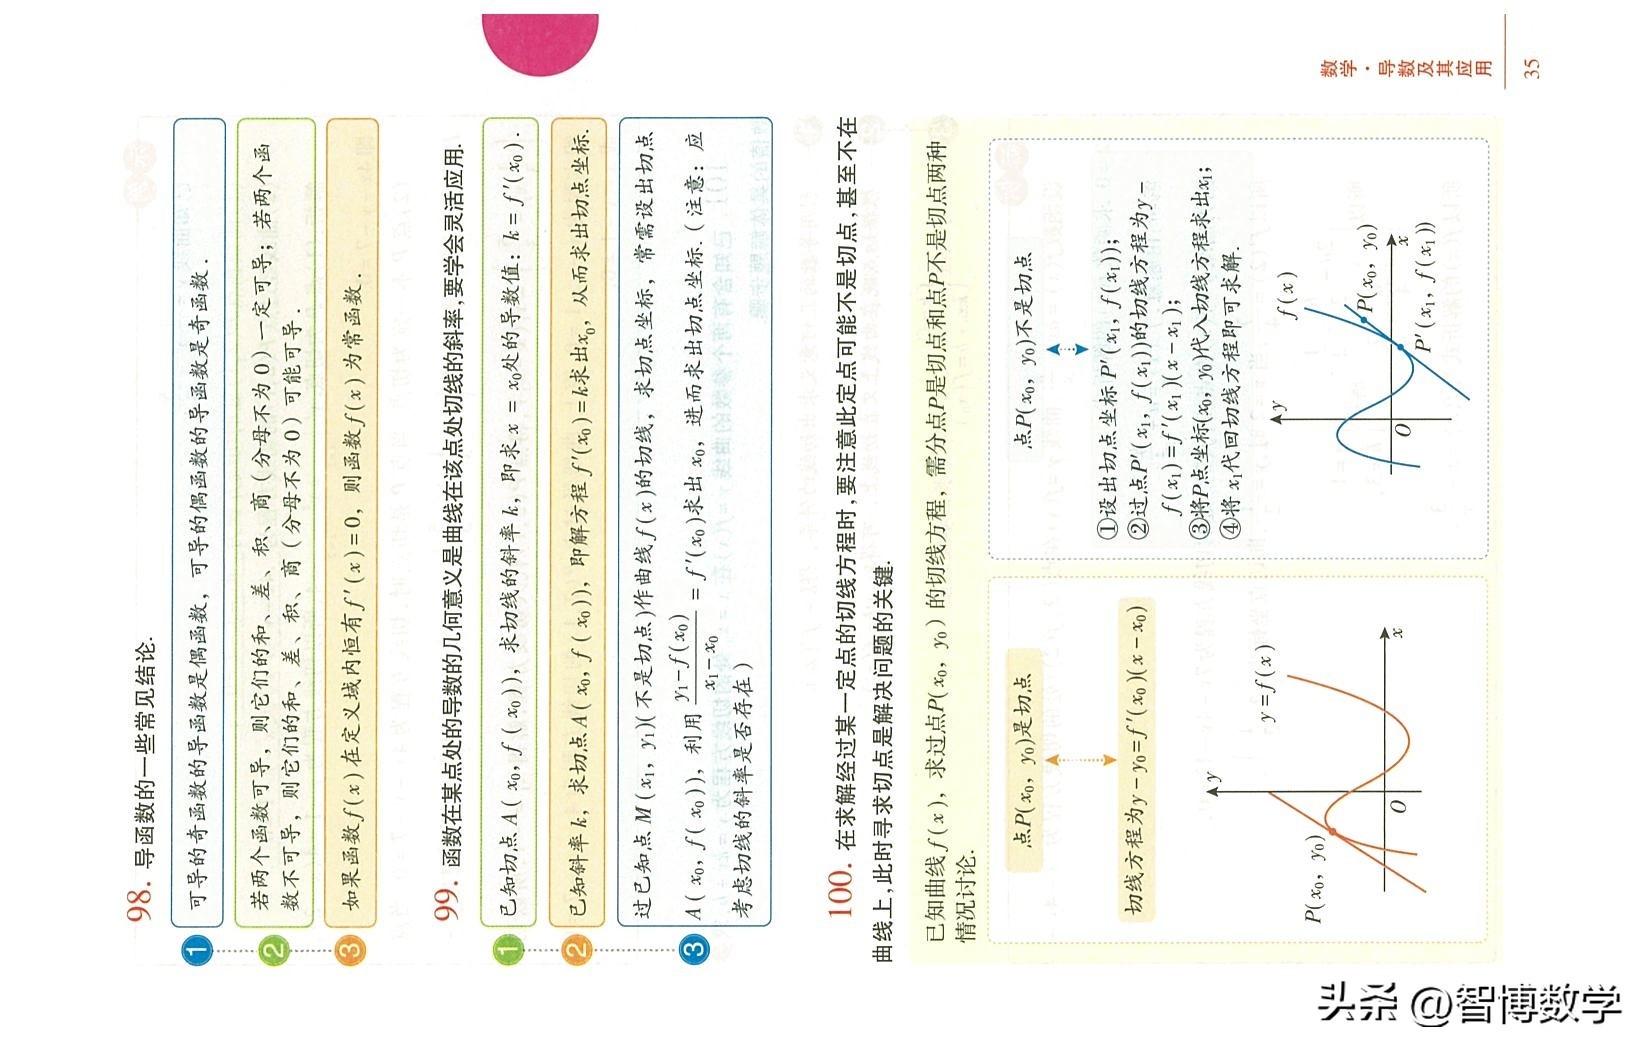 98. 导函数的一些常见结论.
1
可导的奇函数的导函数是偶函数，可导的偶函数的导函数是奇函数.
2
若两个函数可导，则它们的和、差、积、商（分母不为0）一定可导；若两个函
数不可导，则它们的和、差、积、商（分母不为0）可能可导.
3
如果函数f(x)在定义域内恒有f′(x)=0，则函数f(x)为常函数.
99. 函数在某点处的导数的几何意义是曲线在该点处切线的斜率,要学会灵活应用.
1
已知切点A(x₀, f(x₀))，求切线的斜率k，即求x=x₀处的导数值：k=f′(x₀).
2
已知斜率k，求切点A(x₀, f(x₀))，即解方程f′(x₀)=k求出x₀，从而求出切点坐标.
3
过已知点M(x₁, y₁)(不是切点)作曲线f(x)的切线，求切点坐标，常需设出切点
A(x₀, f(x₀))，利用 (y₁−f(x₀))/(x₁−x₀) = f′(x₀)求出x₀，进而求出切点坐标.（注意：应
考虑切线的斜率是否存在）
100. 在求解经过某一定点的切线方程时,要注意此定点可能不是切点,甚至不在
曲线上,此时寻求切点是解决问题的关键.
已知曲线f(x)，求过点P(x₀, y₀)的切线方程，需分点P是切点和点P不是切点两种
情况讨论.
点P(x₀, y₀)是切点
切线方程为y−y₀=f′(x₀)(x−x₀)
y
y=f(x)
P(x₀, y₀)
O
x
点P(x₀, y₀)不是切点
①设出切点坐标P′(x₁, f(x₁));
②过点P′(x₁, f(x₁))的切线方程为y−
f(x₁)=f′(x₁)(x−x₁);
③将P点坐标(x₀, y₀)代入切线方程求出x₁;
④将x₁代回切线方程即可求解.
y
f(x)
P(x₀, y₀)
O
x
P′(x₁, f(x₁))
数学·导数及其应用
35
头条 @智博数学